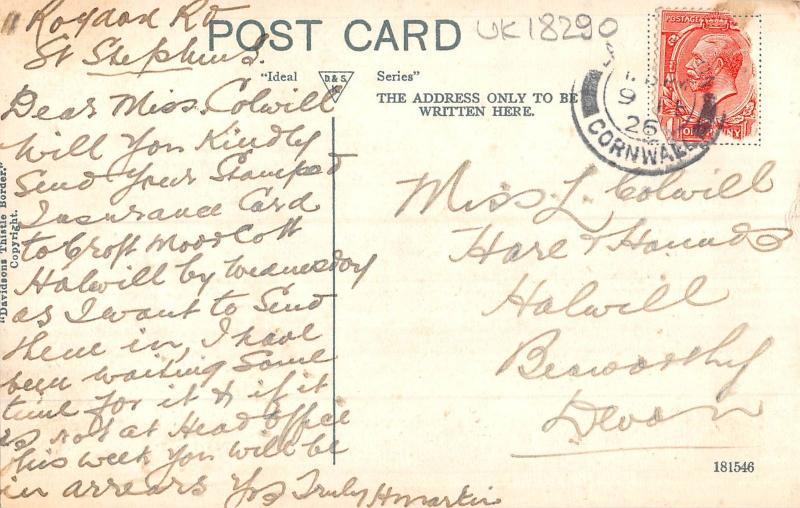 Roydon Rd
St Stephens.
POST CARD
UK18290
"Ideal D.& S. K Series"
THE ADDRESS ONLY TO BE
WRITTEN HERE.
POSTAGE
ONE PENNY
9
26
CORNWALL
Dear Miss. Colwill
Will You Kindly
Send Your Stamped
Insurance Card
to Croft Moorcott
Halwill by Wednesday
as I want to Send
them in, I have
been waiting Some
time for it & if it
is not at Head Office
this week You will be
in arrears Yrs Truly H Martin
Miss L. Colwill
Hare & Hounds
Halwill
Beaworthy
Devon
"Davidsons Thistle Border."
Copyright.
181546